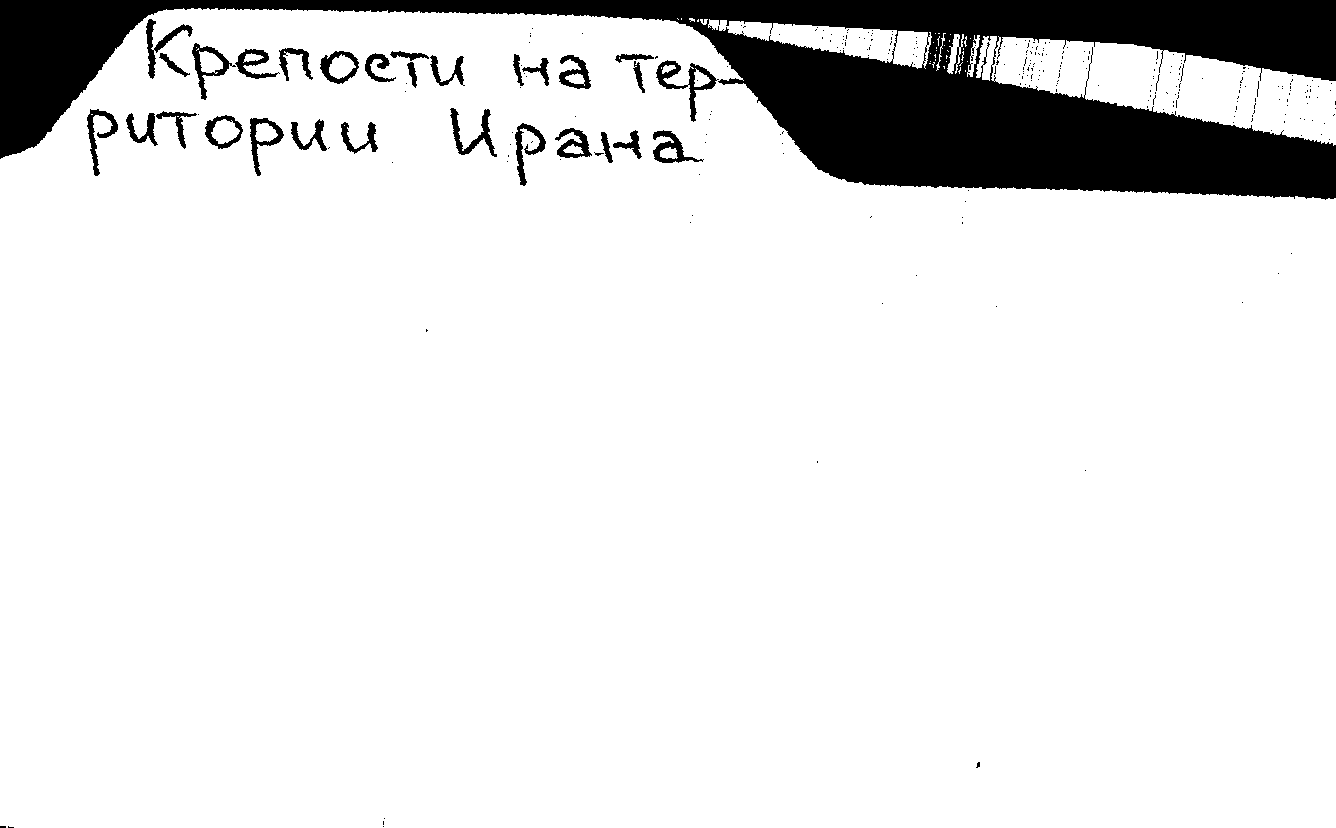 Крепости на тер-
ритории Ирана